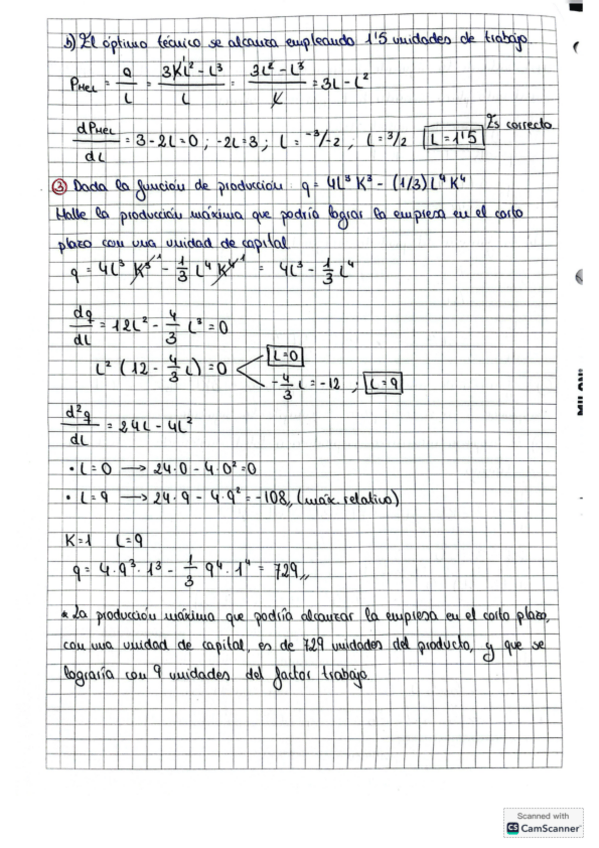 b) El óptimo técnico se alcanza empleando 1'5 unidades de trabajo.
PMeL = q/L = (3KL² - L³)/L = (3L² - L³)/L = 3L - L²
dPMeL/dL = 3 - 2L = 0 ; -2L = 3 ; L = -3/-2 , L = 3/2 L = 1'5 Es correcto
③ Dada la función de producción q = 4L³K³ - (1/3)L⁴K⁴
Halle la producción máxima que podría lograr la empresa en el corto
plazo con una unidad de capital
q = 4L³K³ - 1/3 L⁴K⁴ = 4L³ - 1/3 L⁴
dq/dL = 12L² - 4/3 L³ = 0
L² (12 - 4/3 L) = 0 L=0
-4/3 L = -12 ; L=9
d²q/dL = 24L - 4L²
• L=0 → 24·0 - 4·0² = 0
• L=9 → 24·9 - 4·9² = -108,, (máx. relativo)
K=1 L=9
q = 4·9³·1³ - 1/3 9⁴·1⁴ = 729,,
* La producción máxima que podría alcanzar la empresa en el corto plazo,
con una unidad de capital, es de 729 unidades del producto, y que se
lograría con 9 unidades del factor trabajo
Scanned with
CS CamScanner